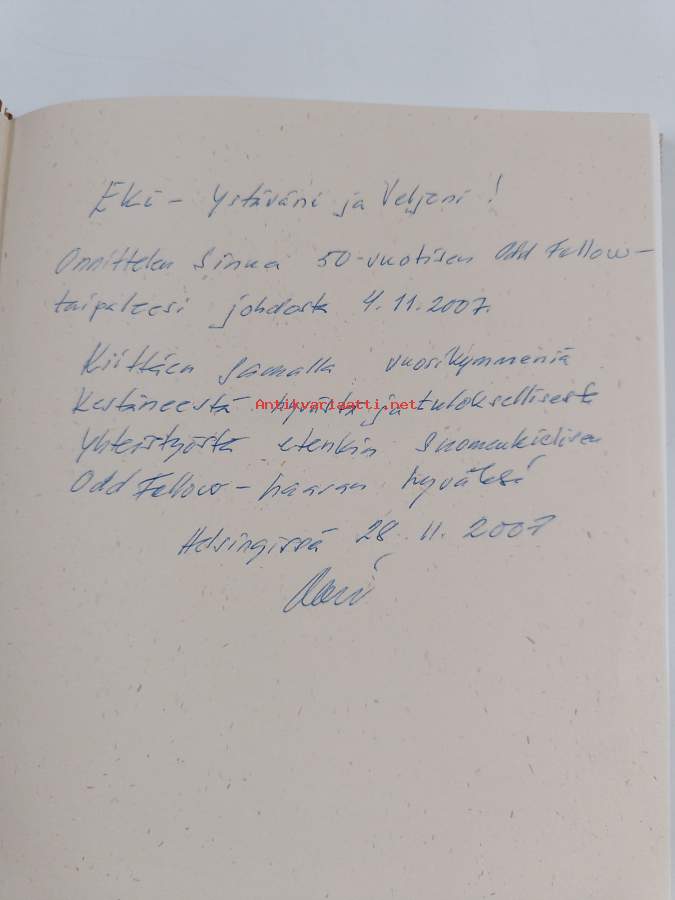 Eki – Ystäväni ja Veljeni!
Onnittelen Sinua 50-vuotisen Odd Fellow-
taipaleesi johdosta 4.11.2007.
Kiittäen samalla vuosikymmeniä
kestäneestä ja tuloksellisesta
Antikvariaatti.net
yhteistyöstä etenkin suomenkielisen
Odd Fellow-haaran hyväksi
Helsingissä 28.11.2007